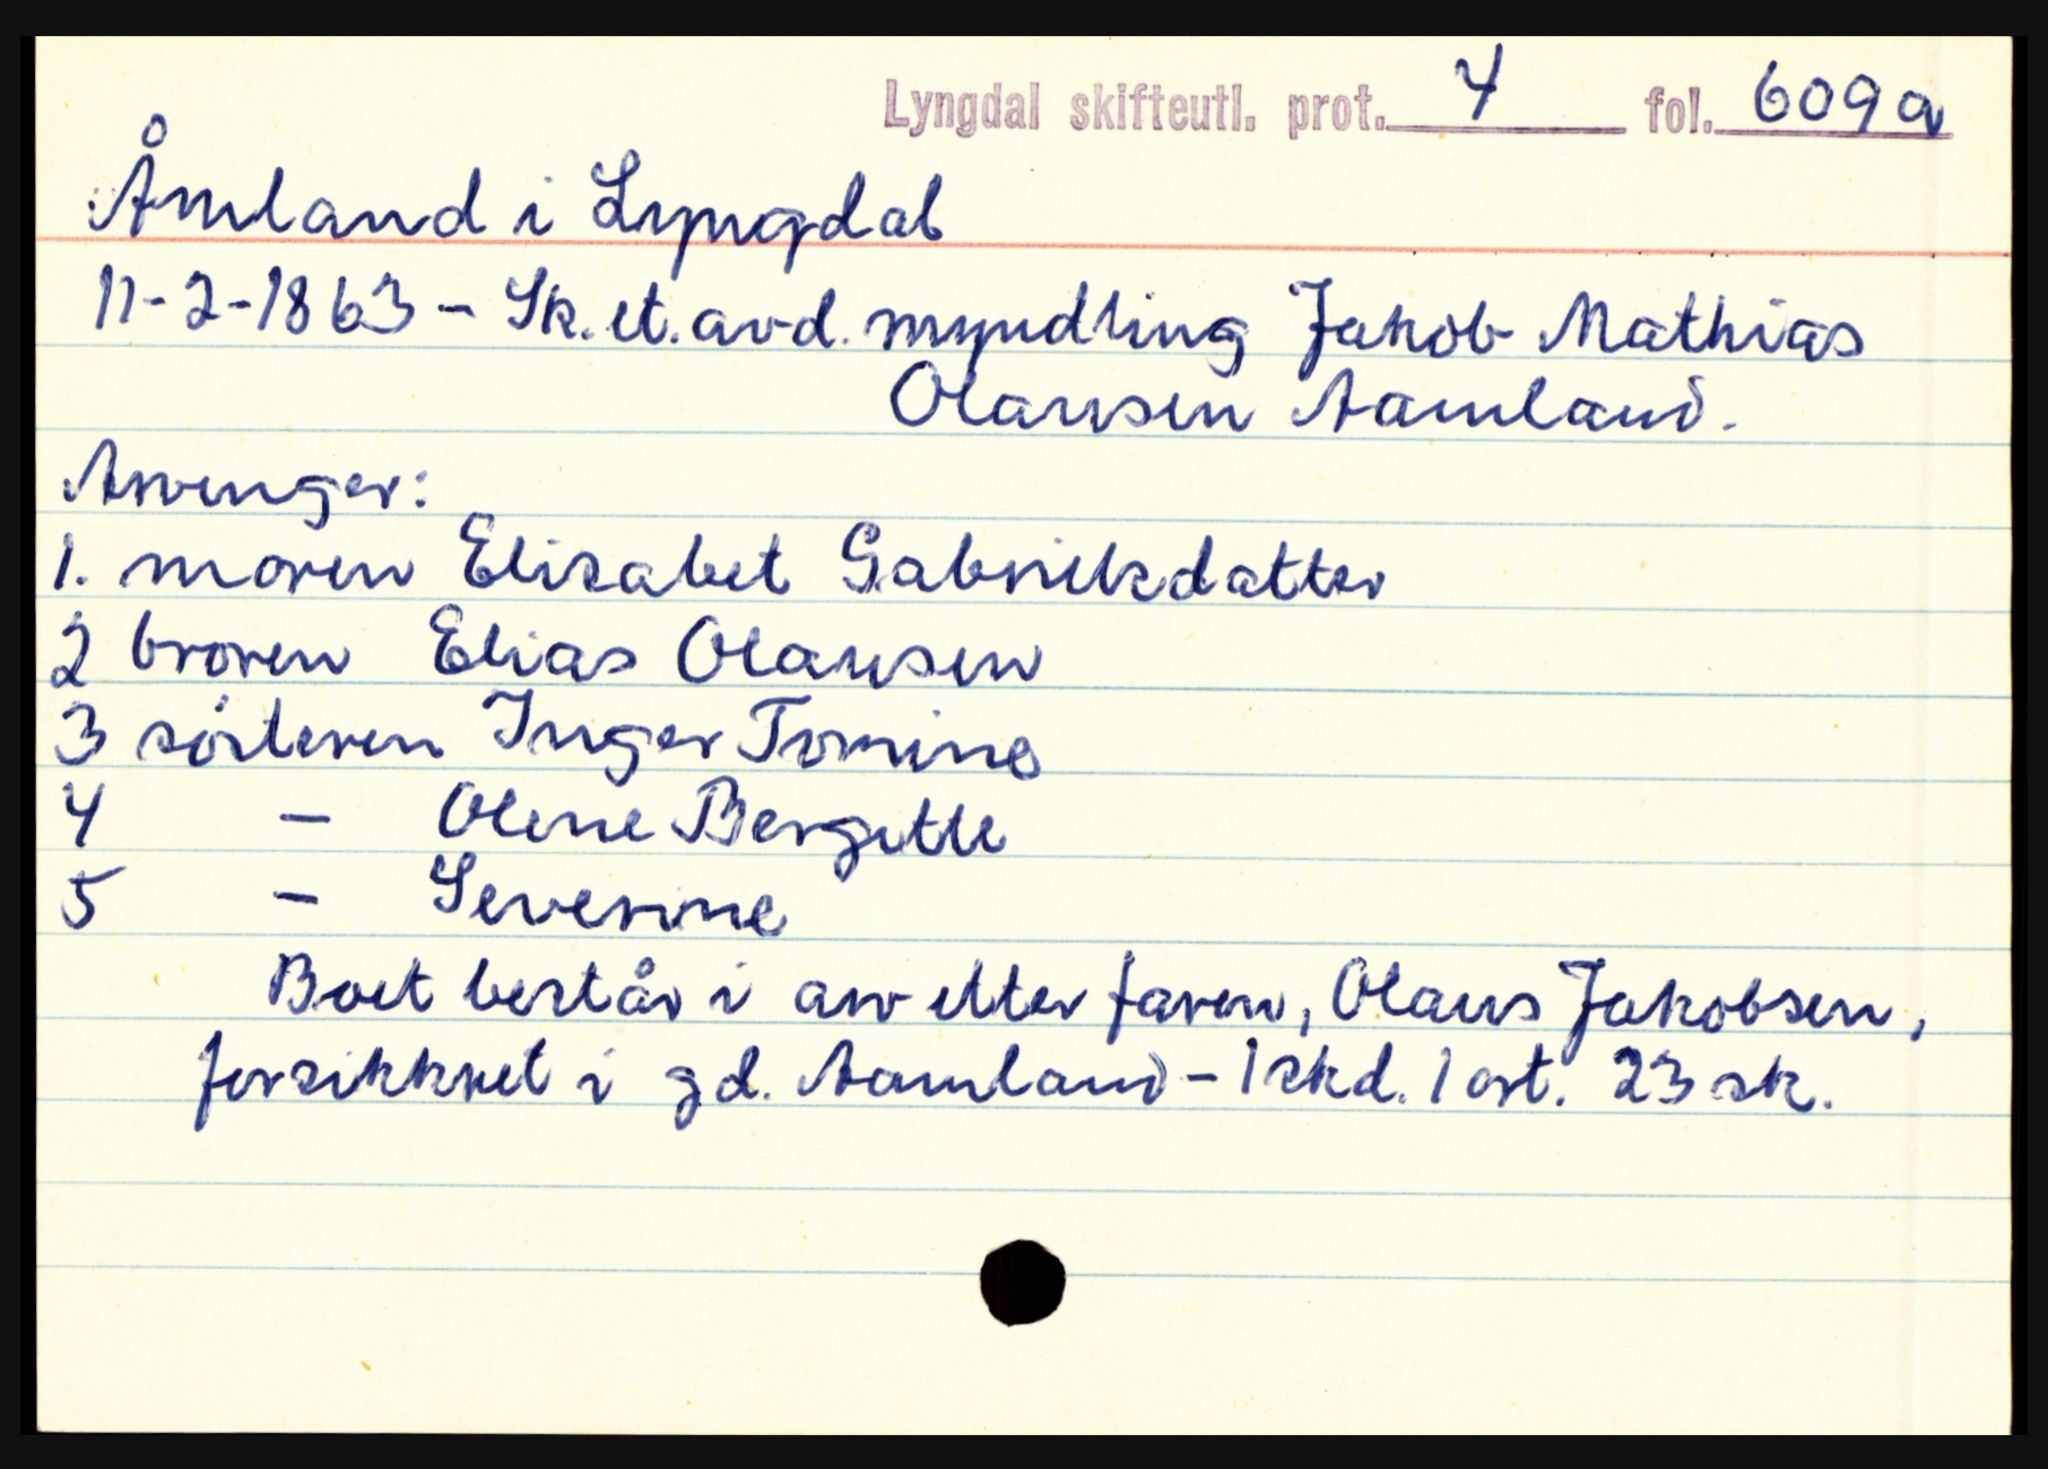 Lyngdal skifteutl. prot. 4 fol. 609a
Åmland i Lyngdal
11-2-1863 - Sk. et. avd. myndling Jakob Mathias
Olausen Aamland.
Arvinger:
1. moren Elisabet Gabrielsdatter
2 broren Elias Olausen
3 søsteren Inger Tomine
4 - Olene Bergitte
5 - Severine
Boet består i arv etter faren, Olaus Jakobsen,
forsikkret i gd. Aamland - 1 skd. 1 ort. 23 sk.